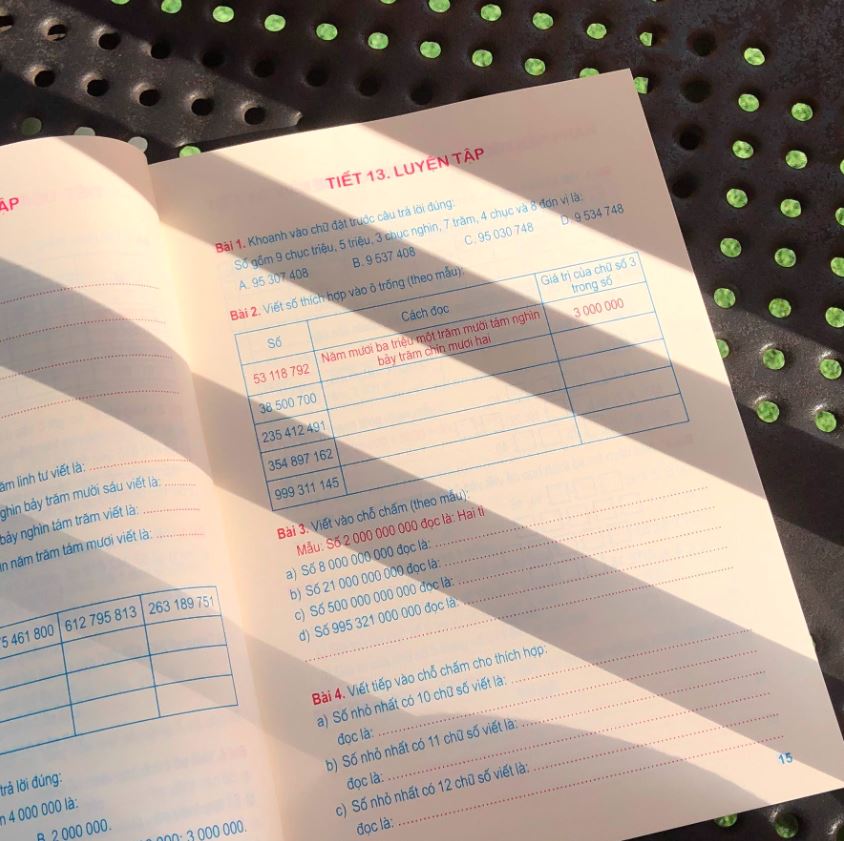 ẬP
ăm linh tư viết là:
ghìn bảy trăm mười sáu viết là:
bảy nghìn tám trăm viết là:
ìn năm trăm tám mươi viết là:
5 461 800 612 795 813 263 189 751
trả lời đúng:
n 4 000 000 là:
B. 2 000 000.
3 000 000.
TIẾT 13. LUYỆN TẬP
Bài 1. Khoanh vào chữ đặt trước câu trả lời đúng:
Số gồm 9 chục triệu, 5 triệu, 3 chục nghìn, 7 trăm, 4 chục và 8 đơn vị là:
A. 95 307 408 B. 9 537 408 C. 95 030 748 D. 9 534 748
Bài 2. Viết số thích hợp vào ô trống (theo mẫu):
Số Cách đọc Giá trị của chữ số 3
trong số
53 118 792 Năm mươi ba triệu một trăm mười tám nghìn 3 000 000
bảy trăm chín mươi hai
38 500 700
235 412 491
354 897 162
999 311 145
Bài 3. Viết vào chỗ chấm (theo mẫu):
Mẫu: Số 2 000 000 000 đọc là: Hai tỉ
a) Số 8 000 000 000 đọc là:
b) Số 21 000 000 000 đọc là:
c) Số 500 000 000 000 đọc là:
d) Số 995 321 000 000 đọc là:
Bài 4. Viết tiếp vào chỗ chấm cho thích hợp:
a) Số nhỏ nhất có 10 chữ số viết là:
đọc là:
b) Số nhỏ nhất có 11 chữ số viết là:
đọc là:
c) Số nhỏ nhất có 12 chữ số viết là:
đọc là:
15